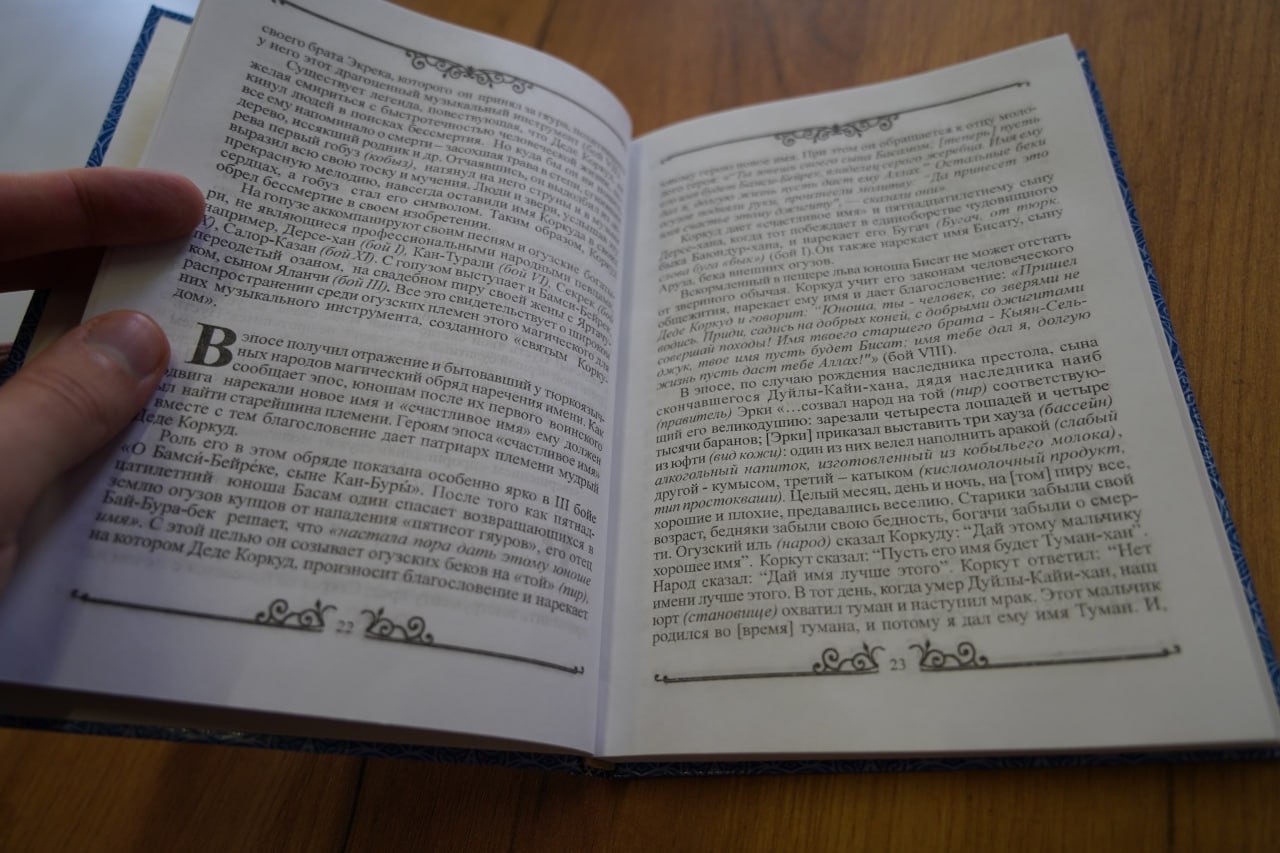 своего брата Экрека, которого он принял за гяура,
у него этот драгоценный музыкальный инструмент (бой
Существует легенда, повествующая, что Деде Коркуд, не
желая смириться с быстротечностью человеческой жизни,
кинул людей в поисках бессмертия. Но куда бы он ни
все ему напоминало о смерти – засохшая трава в степи,
дерево, иссякший родник и др. Отчаявшись, он выдолбил из
рева первый гобуз (кобыз), натянул на него струны и в музыке
выразил всю свою тоску и мучения. Люди и звери, услышав
прекрасную мелодию, навсегда оставили имя Коркуда в своих
сердцах, а гобуз стал его символом. Таким образом, Коркуд
обрел бессмертие в своем изобретении.
На гопузе аккомпанируют своим песням и огузские богаты-
ри, не являющиеся профессиональными народными певцами,
например, Дерсе-хан (бой I), Кан-Турали (бой VI), Секрек (бой
X), Салор-Казан (бой XI). С гопузом выступает и Бамси-Бейрек,
переодетый озаном, на свадебном пиру своей жены с Яртачу-
ком, сыном Яланчи (бой III). Все это свидетельствует о широком
распространении среди огузских племен этого магического для
них музыкального инструмента, созданного «святым Корку-
дом».
В эпосе получил отражение и бытовавший у тюркоязыч-
ных народов магический обряд наречения имени. Как
сообщает эпос, юношам после их первого воинского
подвига нарекали новое имя и «счастливое имя» ему должен
был найти старейшина племени. Героям эпоса «счастливое имя»
вместе с тем благословение дает патриарх племени мудрый
Деде Коркуд.
Роль его в этом обряде показана особенно ярко в III бойе
«О Бамсӣ-Бейрéке, сыне Кан-Буры́». После того как пятнад-
цатилетний юноша Басам один спасает возвращающихся в
землю огузов купцов от нападения «пятисот гяуров», его отец
Бай-Бура-бек решает, что «настала пора дать этому юноше
имя». С этой целью он созывает огузских беков на «той» (пир),
на котором Деде Коркуд, произносит благословение и нарекает
22
новое имя. При этом он обращается к отцу моло-
«Ты зовешь своего сына Басамом; [теперь] пусть
Бамси-Бейрек, владелец серого жеребца. Имя ему
дал я, долгую жизнь пусть даст ему Аллах". Остальные беки
подняли руки, произнесли молитву: "Да принесет это
имя счастье этому джигиту", – сказали они».
Коркуд дает «счастливое имя» и пятнадцатилетнему сыну
Дерсе-хана, когда тот побеждает в единоборстве чудовищного
быка Баюндур-хана, и нарекает его Бугач (Бугач, от тюрк.
слова буга «бык») (бой I). Он также нарекает имя Бисату, сыну
Аруза, бека внешних огузов.
Вскормленный в пещере льва юноша Бисат не может отстать
от звериного обычая. Коркуд учит его законам человеческого
общежития, нарекает ему имя и дает благословение: «Пришел
Деде Коркуд и говорит: "Юноша, ты - человек, со зверями не
водись. Приди, садись на добрых коней, с добрыми джигитами
совершай походы! Имя твоего старшего брата - Кыян-Сель-
джук, твое имя пусть будет Бисат; имя тебе дал я, долгую
жизнь пусть даст тебе Аллах!"» (бой VIII).
В эпосе, по случаю рождения наследника престола, сына
скончавшегося Дуйлы-Кайи-хана, дядя наследника наиб
(правитель) Эрки «…созвал народ на той (пир) соответствую-
щий его великодушию: зарезали четыреста лошадей и четыре
тысячи баранов; [Эрки] приказал выставить три хауза (бассейн)
из юфти (вид кожи): один из них велел наполнить аракой (слабый
алкогольный напиток, изготовленный из кобыльего молока),
другой - кумысом, третий – катыком (кисломолочный продукт,
тип простокваши). Целый месяц, день и ночь, на [том] пиру все,
хорошие и плохие, предавались веселию. Старики забыли свой
возраст, бедняки забыли свою бедность, богачи забыли о смер-
ти. Огузский иль (народ) сказал Коркуду: "Дай этому мальчику
хорошее имя". Коркут сказал: "Пусть его имя будет Туман-хан".
Народ сказал: "Дай имя лучше этого". Коркут ответил: "Нет
имени лучше этого. В тот день, когда умер Дуйлы-Кайи-хан, наш
юрт (становище) охватил туман и наступил мрак. Этот мальчик
родился во [время] тумана, и потому я дал ему имя Туман. И,
23